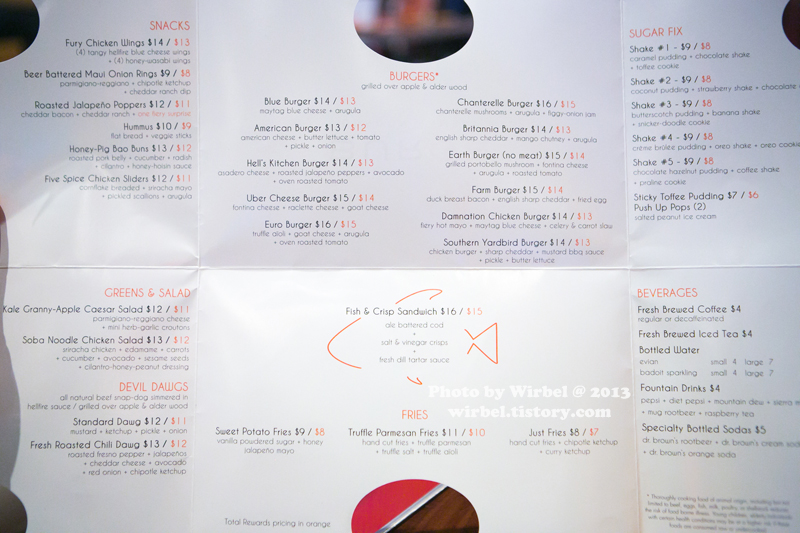 SNACKS
Fury Chicken Wings $14 / $13
(4) tangy hellfire blue cheese wings
+ (4) honey-wasabi wings
Beer Battered Maui Onion Rings $9 / $8
parmigiano-reggiano + chipotle ketchup
+ cheddar ranch dip
Roasted Jalapeño Poppers $12 / $11
cheddar bacon + cheddar ranch + one fiery surprise
Hummus $10 / $9
flat bread + veggie sticks
Honey-Pig Bao Buns $13 / $12
roasted pork belly + cucumber + radish
+ cilantro + honey-hoisin sauce
Five Spice Chicken Sliders $12 / $11
cornflake breaded + sriracha mayo
+ pickled scallions + arugula
BURGERS*
grilled over apple & alder wood
Blue Burger $14 / $13
maytag blue cheese + arugula
American Burger $13 / $12
american cheese + butter lettuce + tomato
+ pickle + onion
Hell's Kitchen Burger $14 / $13
asadero cheese + roasted jalapeño peppers + avocado
+ oven roasted tomato
Uber Cheese Burger $15 / $14
fontina cheese + raclette cheese + goat cheese
Euro Burger $16 / $15
truffle aioli + goat cheese + arugula
+ oven roasted tomato
Chanterelle Burger $16 / $15
chanterelle mushrooms + arugula + figgy-onion jam
Britannia Burger $14 / $13
english sharp cheddar + mango chutney + arugula
Earth Burger (no meat) $15 / $14
grilled portobello mushroom + fontina cheese
+ arugula + roasted tomato
Farm Burger $15 / $14
duck breast bacon + english sharp cheddar + fried egg
Damnation Chicken Burger $14 / $13
fiery hot mayo + maytag blue cheese + celery & carrot slaw
Southern Yardbird Burger $14 / $13
chicken burger + sharp cheddar + mustard bbq sauce
+ pickle + butter lettuce
SUGAR FIX
Shake #1 - $9 / $8
caramel pudding + chocolate shake
+ toffee cookie
Shake #2 - $9 / $8
coconut pudding + strawberry shake + chocolate
Shake #3 - $9 / $8
butterscotch pudding + banana shake
+ snicker-doodle cookie
Shake #4 - $9 / $8
crème brûlée pudding + oreo shake + oreo cookie
Shake #5 - $9 / $8
chocolate hazelnut pudding + coffee shake
+ praline cookie
Sticky Toffee Pudding $7 / $6
Push Up Pops (2)
salted peanut ice cream
GREENS & SALAD
Kale Granny-Apple Caesar Salad $12 / $11
parmigiano-reggiano cheese
+ mini herb-garlic croutons
Soba Noodle Chicken Salad $13 / $12
sriracha chicken + edamame + carrots
+ cucumber + avocado + sesame seeds
+ cilantro-honey-peanut dressing
DEVIL DAWGS
all natural beef snap-dog simmered in
hellfire sauce / grilled over apple & alder wood
Standard Dawg $12 / $11
mustard + ketchup + pickle + onion
Fresh Roasted Chili Dawg $13 / $12
roasted fresno pepper + jalapeños
+ cheddar cheese + avocado
+ red onion + chipotle ketchup
Fish & Crisp Sandwich $16 / $15
ale battered cod
+
salt & vinegar crisps
+
fresh dill tartar sauce
Photo by Wirbel @ 2013
wirbel.tistory.com
FRIES
Sweet Potato Fries $9 / $8
vanilla powdered sugar + honey
jalapeño mayo
Truffle Parmesan Fries $11 / $10
hand cut fries + truffle parmesan
+ truffle salt + truffle aioli
Just Fries $8 / $7
hand cut fries + chipotle ketchup
+ curry ketchup
Total Rewards pricing in orange
BEVERAGES
Fresh Brewed Coffee $4
regular or decaffeinated
Fresh Brewed Iced Tea $4
Bottled Water
evian small 4 large 7
badoit sparkling small 4 large 7
Fountain Drinks $4
pepsi + diet pepsi + mountain dew + sierra
+ mug rootbeer + raspberry tea
Specialty Bottled Sodas $5
dr. brown's rootbeer + dr. brown's cream soda
+ dr. brown's orange soda